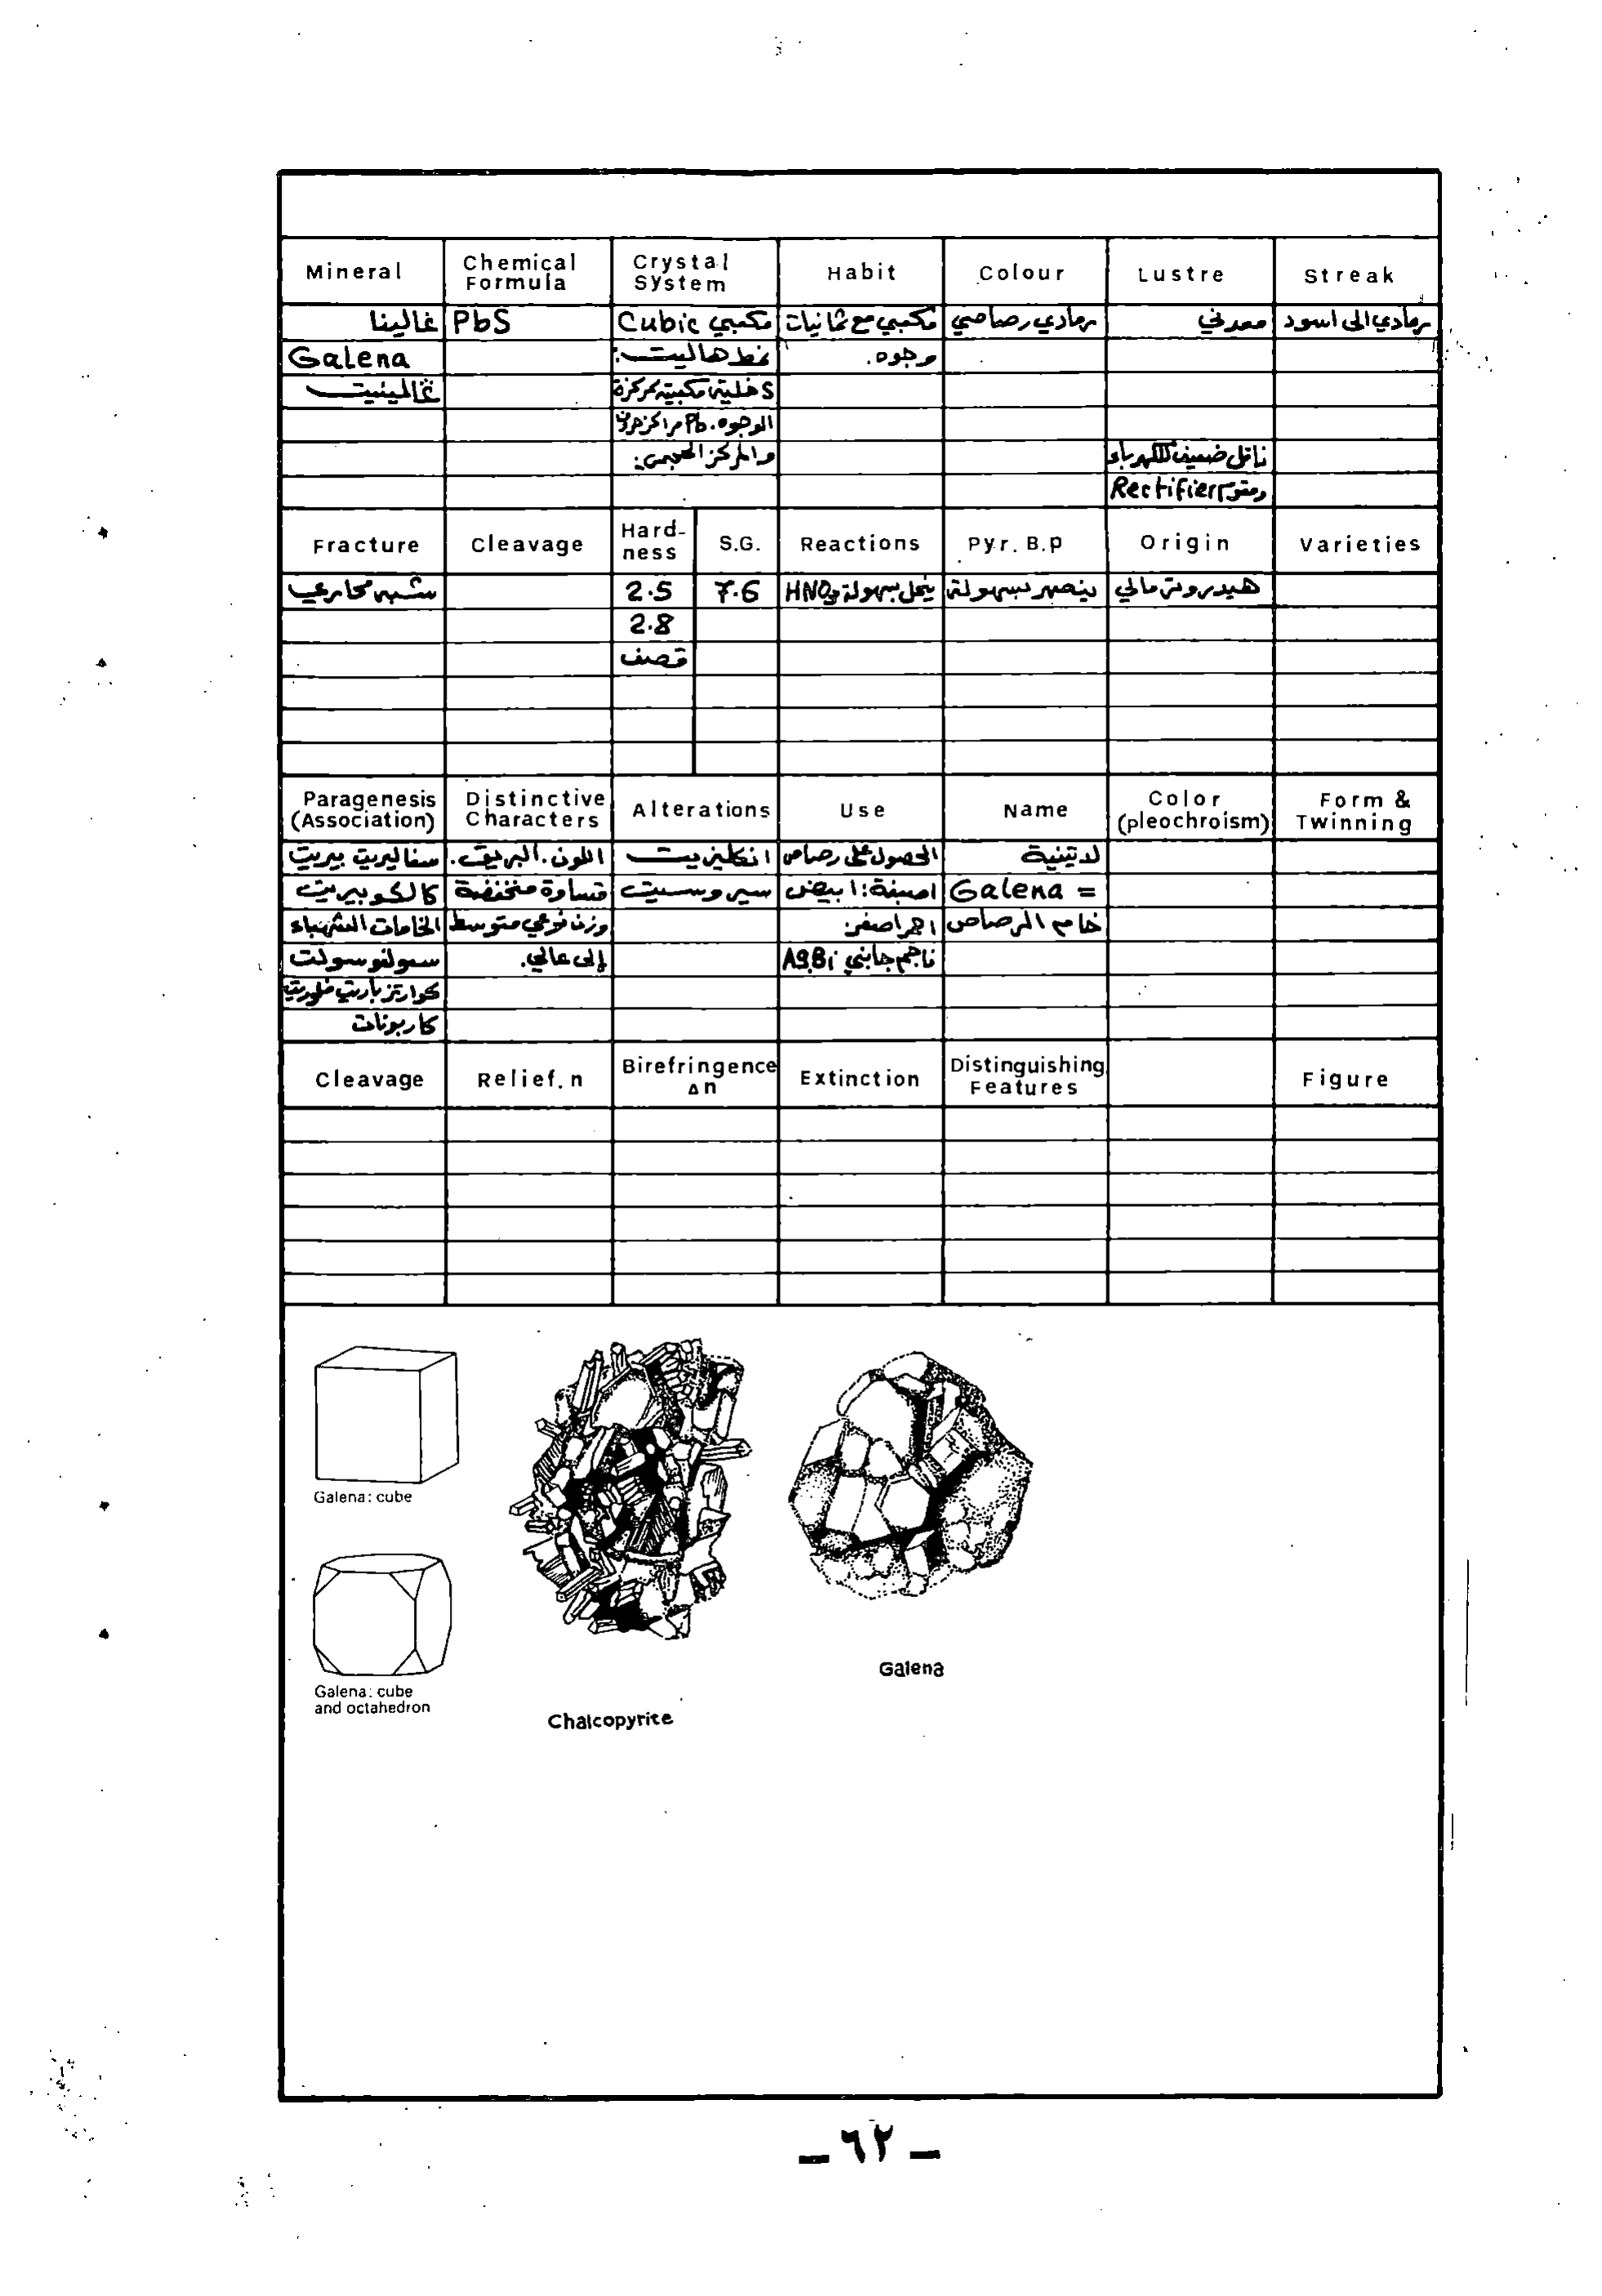 Mineral Chemical Formula Crystal System Habit Colour Lustre Streak
غالينا PbS مكعبي Cubic مكعبي مع ثمانيات رمادي رصاصي معدني رمادي الى اسود
Galena نمط هاليت: وجوه.
غالينيت S خلية مكعبية ممركزة
الوجوه. Pb مراكز حروف
والمركز الحجمي. ناقل ضعيف للكهرباء
ومقوم Rectifier
Fracture Cleavage Hard-ness S.G. Reactions Pyr. B.p Origin Varieties
شبه محاري 2.5 7.6 ينحل بسهولة في HNO3 ينصهر بسهولة هيدروترمالي
2.8
قصف
Paragenesis (Association) Distinctive Characters Alterations Use Name Color (pleochroism) Form & Twinning
سفاليريت بيريت اللون. البريق. انكليزيت الحصول على رصاص لاتينية
كالكوبيريت قساوة منخفضة سيروسيت اصبغة: ابيض Galena =
الخامات الشهباء وزن نوعي متوسط احمر اصفر. خام الرصاص
سولفوسولت إلى عالي. ناجم جانبي Ag.Bi
كوارتز باريت فلوريت
كاربونات
Cleavage Relief. n Birefringence Δn Extinction Distinguishing Features Figure
Galena: cube
Galena: cube
and octahedron
Chalcopyrite
Galena
– ٦٢ –